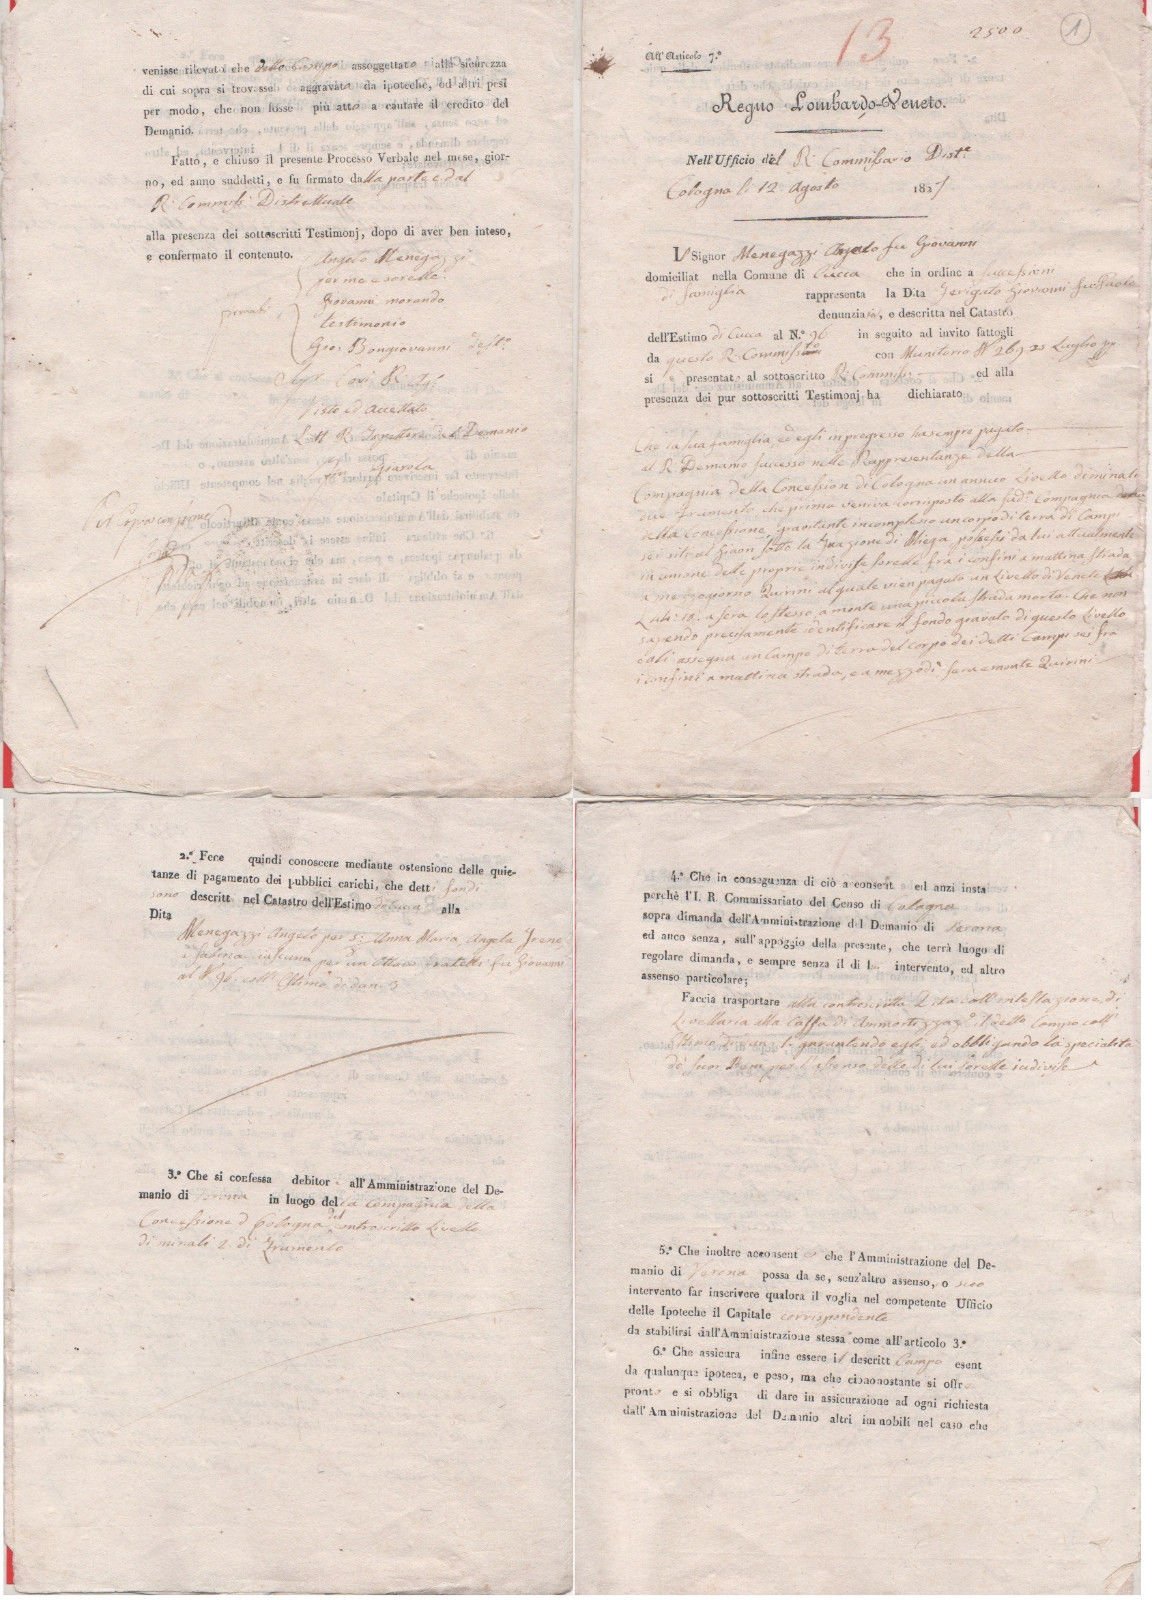 venisse rilevato che detto Campo assoggettato alla sicurezza
di cui sopra si trovasse aggravato da ipoteche, od altri pesi
per modo, che non fosse più atto a cautare il credito del
Demanio.
Fatto, e chiuso il presente Processo Verbale nel mese, gior-
no, ed anno suddetti, e fu firmato dalla parte e dal
R. Commiss. Distrettuale
alla presenza dei sottoscritti Testimonj, dopo di aver ben inteso,
e confermato il contenuto.
Angelo Menegazzi
per me e sorelle
Giovanni morando
testimonio
firmati
Gios. Bongiovanni test.o
Visto ed Accettato
R. Ispettore del Demanio
1
2500
13
All'Articolo 7.º
Regno Lombardo-Veneto.
Nell'Ufficio del R. Commissario Dist.e
Cologna li 12 Agosto 1827
Il Signor Menegazzi Angelo fu Giovanni
domiciliat nella Comune di Cucca che in ordine a successioni
di famiglia rappresenta la Dita Giovanni fu Paolo
denunziata, e descritta nel Catastro
dell'Estimo di Cucca al N.º 96 in seguito ad invito fattogli
da questo R. Commiss. con Munitorio N 269 23 Luglio
si presentato al sottoscritto R. Commiss. ed alla
presenza dei pur sottoscritti Testimonj ha dichiarato
Che la sua famiglia, ed egli in progresso ha sempre pagato
al R. Demanio successo nelle Rappresentanze della
Compagnia della Concession di Cologna un annuo Livello di minali
due Frumento, che prima veniva corrisposto alla sud.a Compagnia
della Concessione, gravitante in complesso un corpo di terra di Campi
sei siti al sotto la di Miega, possessi da lui attualmente
in unione delle proprie indivise sorelle fra i confini a mattina strada
a mezzogiorno Quirini al quale vien pagato un Livello di Venete
a sera lo stesso, a monte una piccola strada morta. Che non
sapendo precisamente identificare il fondo gravato di questo Livello
egli assegna un Campo di terra del corpo dei detti Campi sei fra
i confini a mattina strada, e a mezzodì sera e monte Quirini
2.º Fece quindi conoscere mediante ostensione delle quie-
tanze di pagamento dei pubblici carichi, che detti fondi
sono descritt nel Catastro dell'Estimo alla
Dita
Menegazzi Angelo per 5: Anna Maria, Angela, Irene
per un Ottavo fratelli fu Giovanni
al N. 96 coll'Estimo di
3.º Che si confessa debitor all'Amministrazione del De-
manio di Verona in luogo della Compagnia della
Concessione di Cologna del controscritto Livello
di minali 2 di Frumento
4.º Che in conseguenza di ciò aconsent ed anzi insta
perchè l'I. R. Commissariato del Censo di Cologna
sopra dimanda dell'Amministrazione del Demanio di Verona
ed anco senza, sull'appoggio della presente, che terrà luogo di
regolare dimanda, e sempre senza il di lui intervento, ed altro
assenso particolare;
Faccia trasportare alla controscritta Dita coll'intestazione di
Livellaria alla Cassa di Ammortizzaz.e il detto Campo coll'
Estimo garantendo egli, ed obbligando la specialità
de' suoi Beni per l'assenso delle di lui sorelle indivise
5.º Che inoltre acconsente che l'Amministrazione del De-
manio di Verona possa da se, senz'altro assenso, o suo
intervento far inscrivere qualora il voglia nel competente Ufficio
delle Ipoteche il Capitale corrispondente
da stabilirsi dall'Amministrazione stessa come all'articolo 3.º
6.º Che assicura infine essere il descritt Campo esent
da qualunque ipoteca, e peso, ma che ciononostante si offre
pronto e si obbliga di dare in assicurazione ad ogni richiesta
dall'Amministrazione del Demanio altri immobili nel caso che